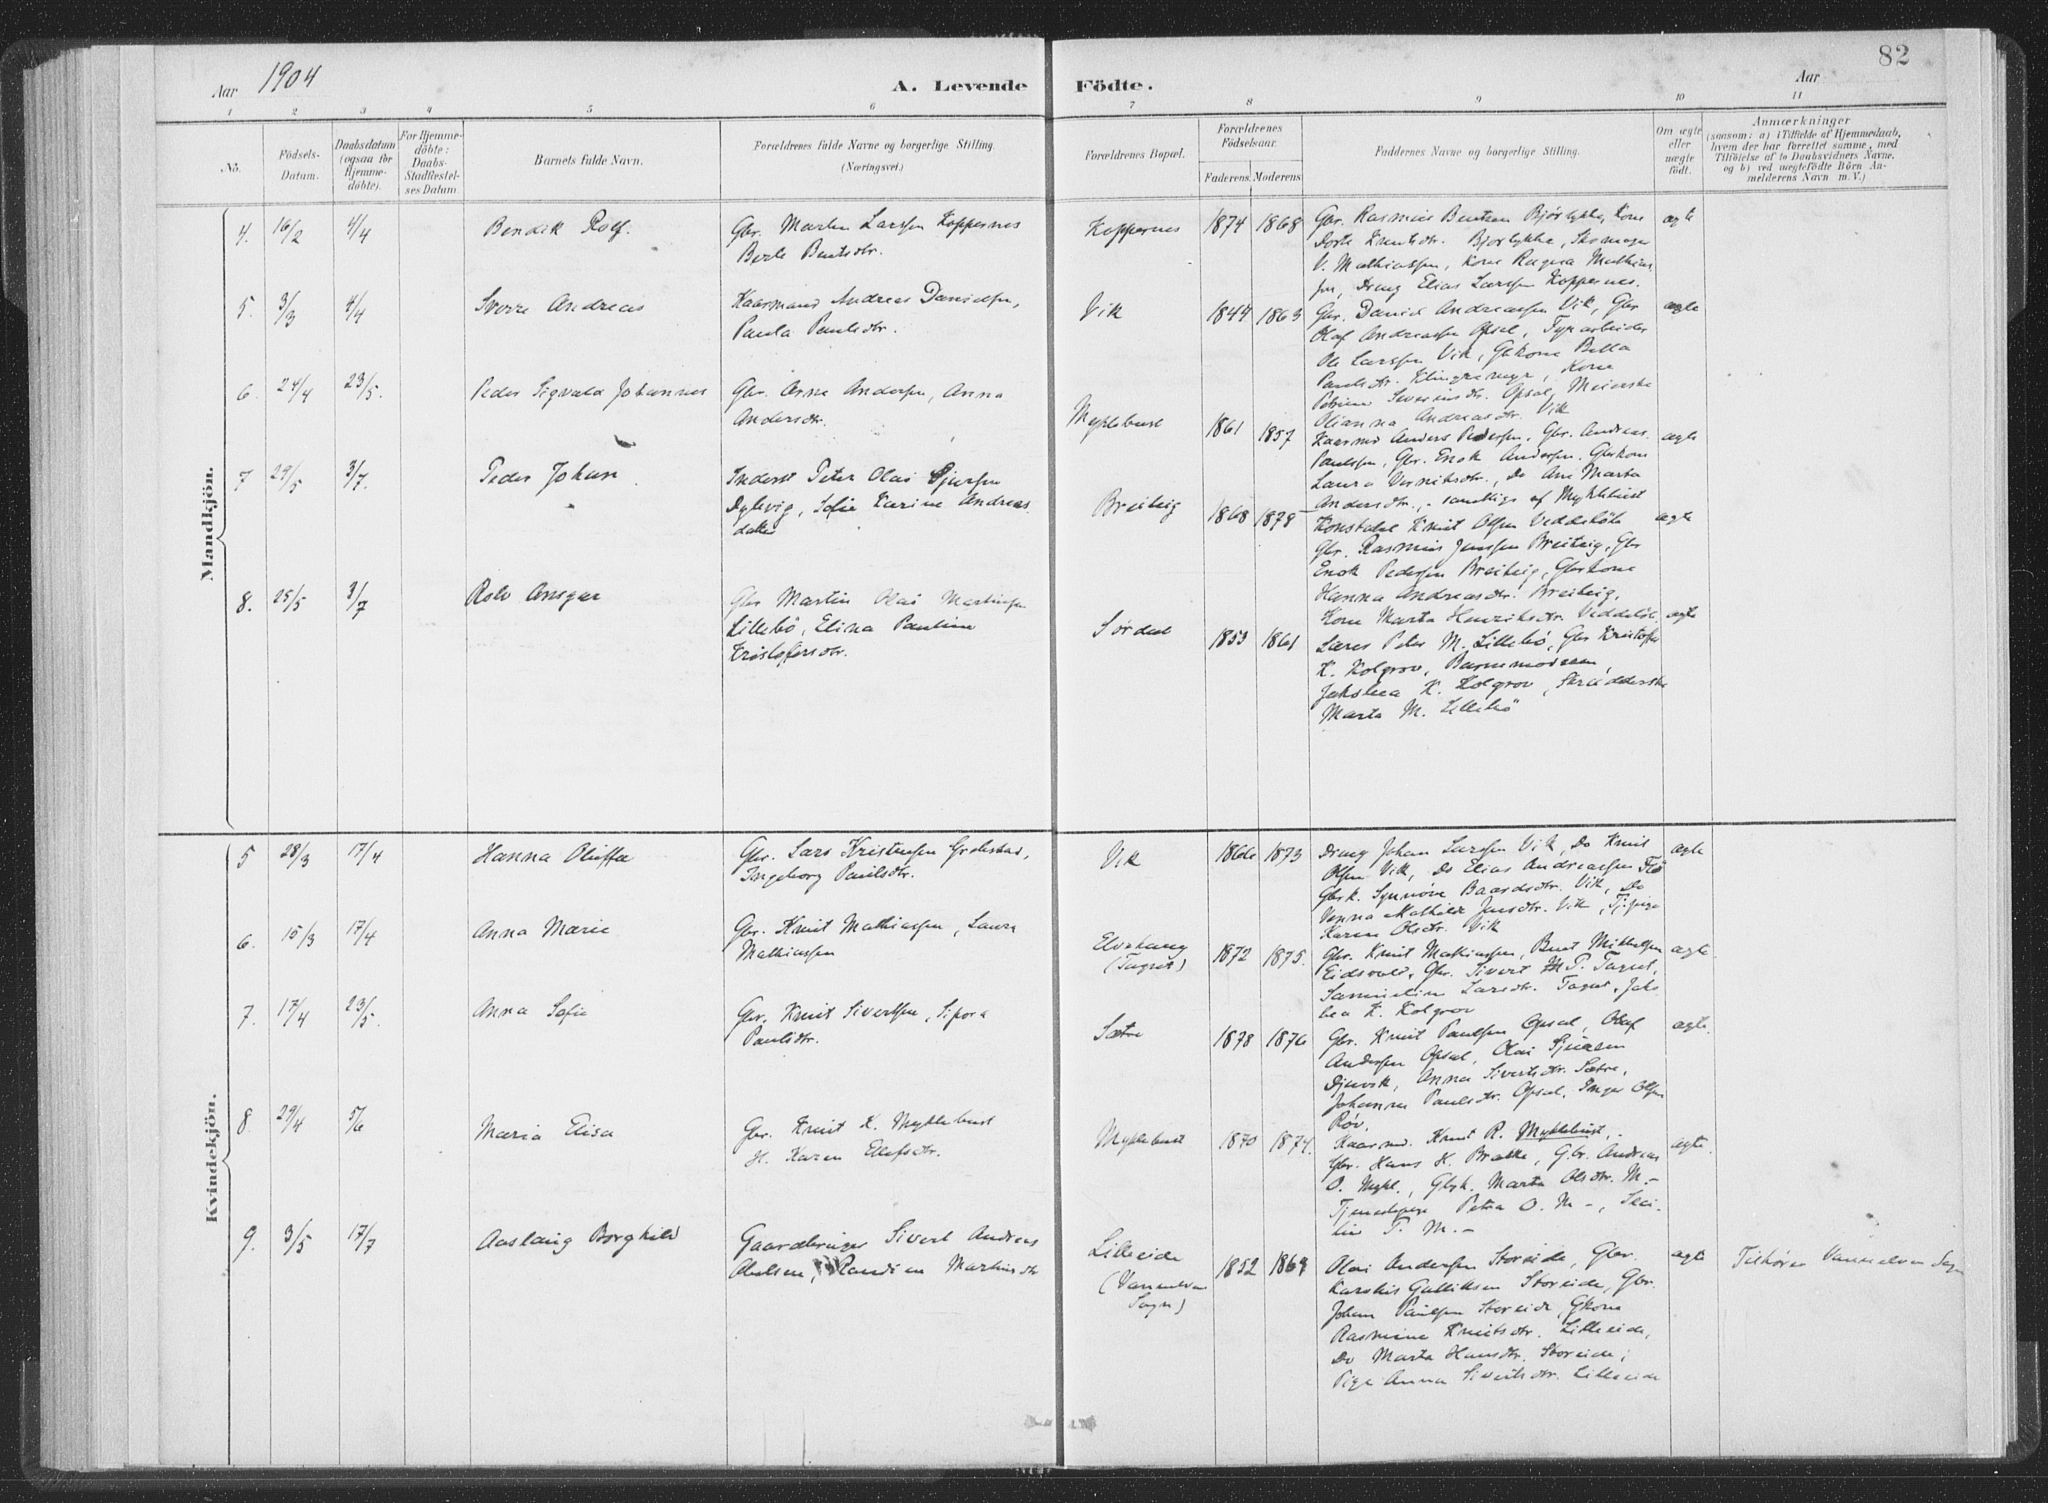 82
Aar 1904
A. Levende Födte.
Aar
1 2 3 4 5 6 7 8 9 10 11
No.
Födsels-
Datum.
Daabsdatum
(ogsaa for
Hjemme-
döbte).
For Hjemme-
döbte:
Daabs-
Stadfæstel-
ses Datum.
Barnets fulde Navn.
Forældrenes fulde Navne og borgerlige Stilling.
(Næringsvei.)
Forældrenes Bopæl.
Forældrenes
Födselsaar.
Faderens. Moderens.
Faddernes Navne og borgerlige Stilling.
Om ægte
eller
uægte
födt.
Anmærkninger
(saasom: a) i Tilfælde af Hjemmedaab,
hvem der har forrettet samme, med
Tilföielse af to Daabsvidners Navne,
og b) ved uægtefödte Börn An-
melderens Navn m. V.)
Mandkjön.
4. 16/2 4/4 Bendik Rolf.
Gbr. Martin Larssen Koppernes
Berte Bentsdtr.
Koppernes 1874 1868
Gbr. Rasmus Bentsen Bjørlykke, Kone
Dorte Knutsdtr. Bjørlykke, Skomager
V. Mathiassen, Kone Ragna Mathias
sen, Dreng Elias Larssen Koppernes.
ægte
5. 3/3 4/4 Sverre Andreas
Kaarmand Andreas Danielsen,
Paula Paulsdtr.
Vik 1844 1863
Gbr. Daniel Andreassen Vik, Gbr
Olaf Andreassen Opsal,
Ole Larssen Vik, Gbkone Bella
Paulsdtr. Klungremyr, Kone
Petrine Severinsdtr. Opsal, Meierske
Olianna Andreasdtr. Vik
ægte
6. 24/4 23/5. Peder Sigvald Johannes
Gbr. Arne Andersen, Anna
Andersdtr.
Myklebust 1861 1857
Kaarmd Anders Pedersen, Gbr. Andreas
Paulssen, Gbr. Enok Andersen, Gbrkone
Laura, Do Ane Marta
Andersdtr., samtlige af Myklebust
ægte
7 29/5 3/7. Peder Johan
Inderst Peter Olai Sjursen
Dylevig, Sofie Karine Andreas
datter
Breiteig 1868 1878
Konstabel Knut Olsen Veddebøle
Gbr. Rasmus Jenssen Breiteig, Gbr
Enok Pedersen Breiteig, Gbrkone
Hanna Andreasdtr. Breiteig,
Kone Marta Henriksdtr. Veddebøle.
ægte
8. 25/5 3/7 Rolv Ansgar
Gbr Martin Olai Martinsen
Lillebø, Elina Pauline
Kristofersdtr.
Sørdal 1853 1861
Lærer Peter M. Lillebø, Gbr Kristofer
K. Kolgrov, Barnemoderen,
Jakobea K. Kolgrov, Skrædderske
Marta M. Lillebø
ægte
Kvindekjön.
5 28/3 17/4 Hanna Oluffa
Gbr. Lars Kristensen Grebstad,
Ingeborg Paulsdtr.
Vik 1866 1873
Dreng Johan Larssen Vik, Do Knut
Olsen Vik, Do Elias Andreassen Flø
Gbrk. Synnøve Baardsdtr. Vik, Do
Vonna Mathilde Jensdtr. Vik, Tj.pige
Karen Olsdtr. Vik
ægte
6. 15/3 17/4 Anna Marie
Gbr. Knut Mathiassen, Laura
Mathiassen
(Tagset) 1872 1875.
Gbr. Knut Mathiassen, Bent Mikkelsen
Eidsvold, Gbr. Sivert M. P. Tagset,
Larsdtr. Tagset, Jako
bea K. Kolgrov
ægte.
7. 17/4 23/5. Anna Sofie
Gbr. Knut Sivertsen, Sipora
Paulsdtr.
Sætre 1878 1876
Gbr. Knut Paulsen Opsal, Olaf
Andersen Opsal, Olai Sjursen
Djuvik, Anna Sivertsdtr. Sætre,
Johanna Paulsdtr. Opsal, Inger Olsen
Røv.
ægte.
8. 29/4 5/6 Maria Elisa
Gbr. Knut K. Myklebust
H. Karen Elefsdtr.
Myklebust 1870 1874.
Kaarmd. Knut R. Myklebust,
Gbr. Hans H. Brekke, Gbr. Andreas
O. Mykl., Gbrk. Marta Olsdtr. M.-
Tjenestepige Petra O. M-,
P. M.-
ægte.
9. 3/5 17/7 Aaslaug Borghild
Gaardbruger Sivert Andreas
Abelsen, Randien Martinsdtr
Lilleeide
(Vanelven
Sogn) 1852 1869
Olai Andersen Storeide, Gbr.
Karolus Gulliksen Storeide, Gbr.
Johan Paulsen Storeide, Gkone
Rasmine Knutsdtr. Lilleeide,
Do Marta Hansdtr. Storeide;
Pige Anna Sivertsdtr. Lilleeide
ægte Tilhører Vannelven Sogn